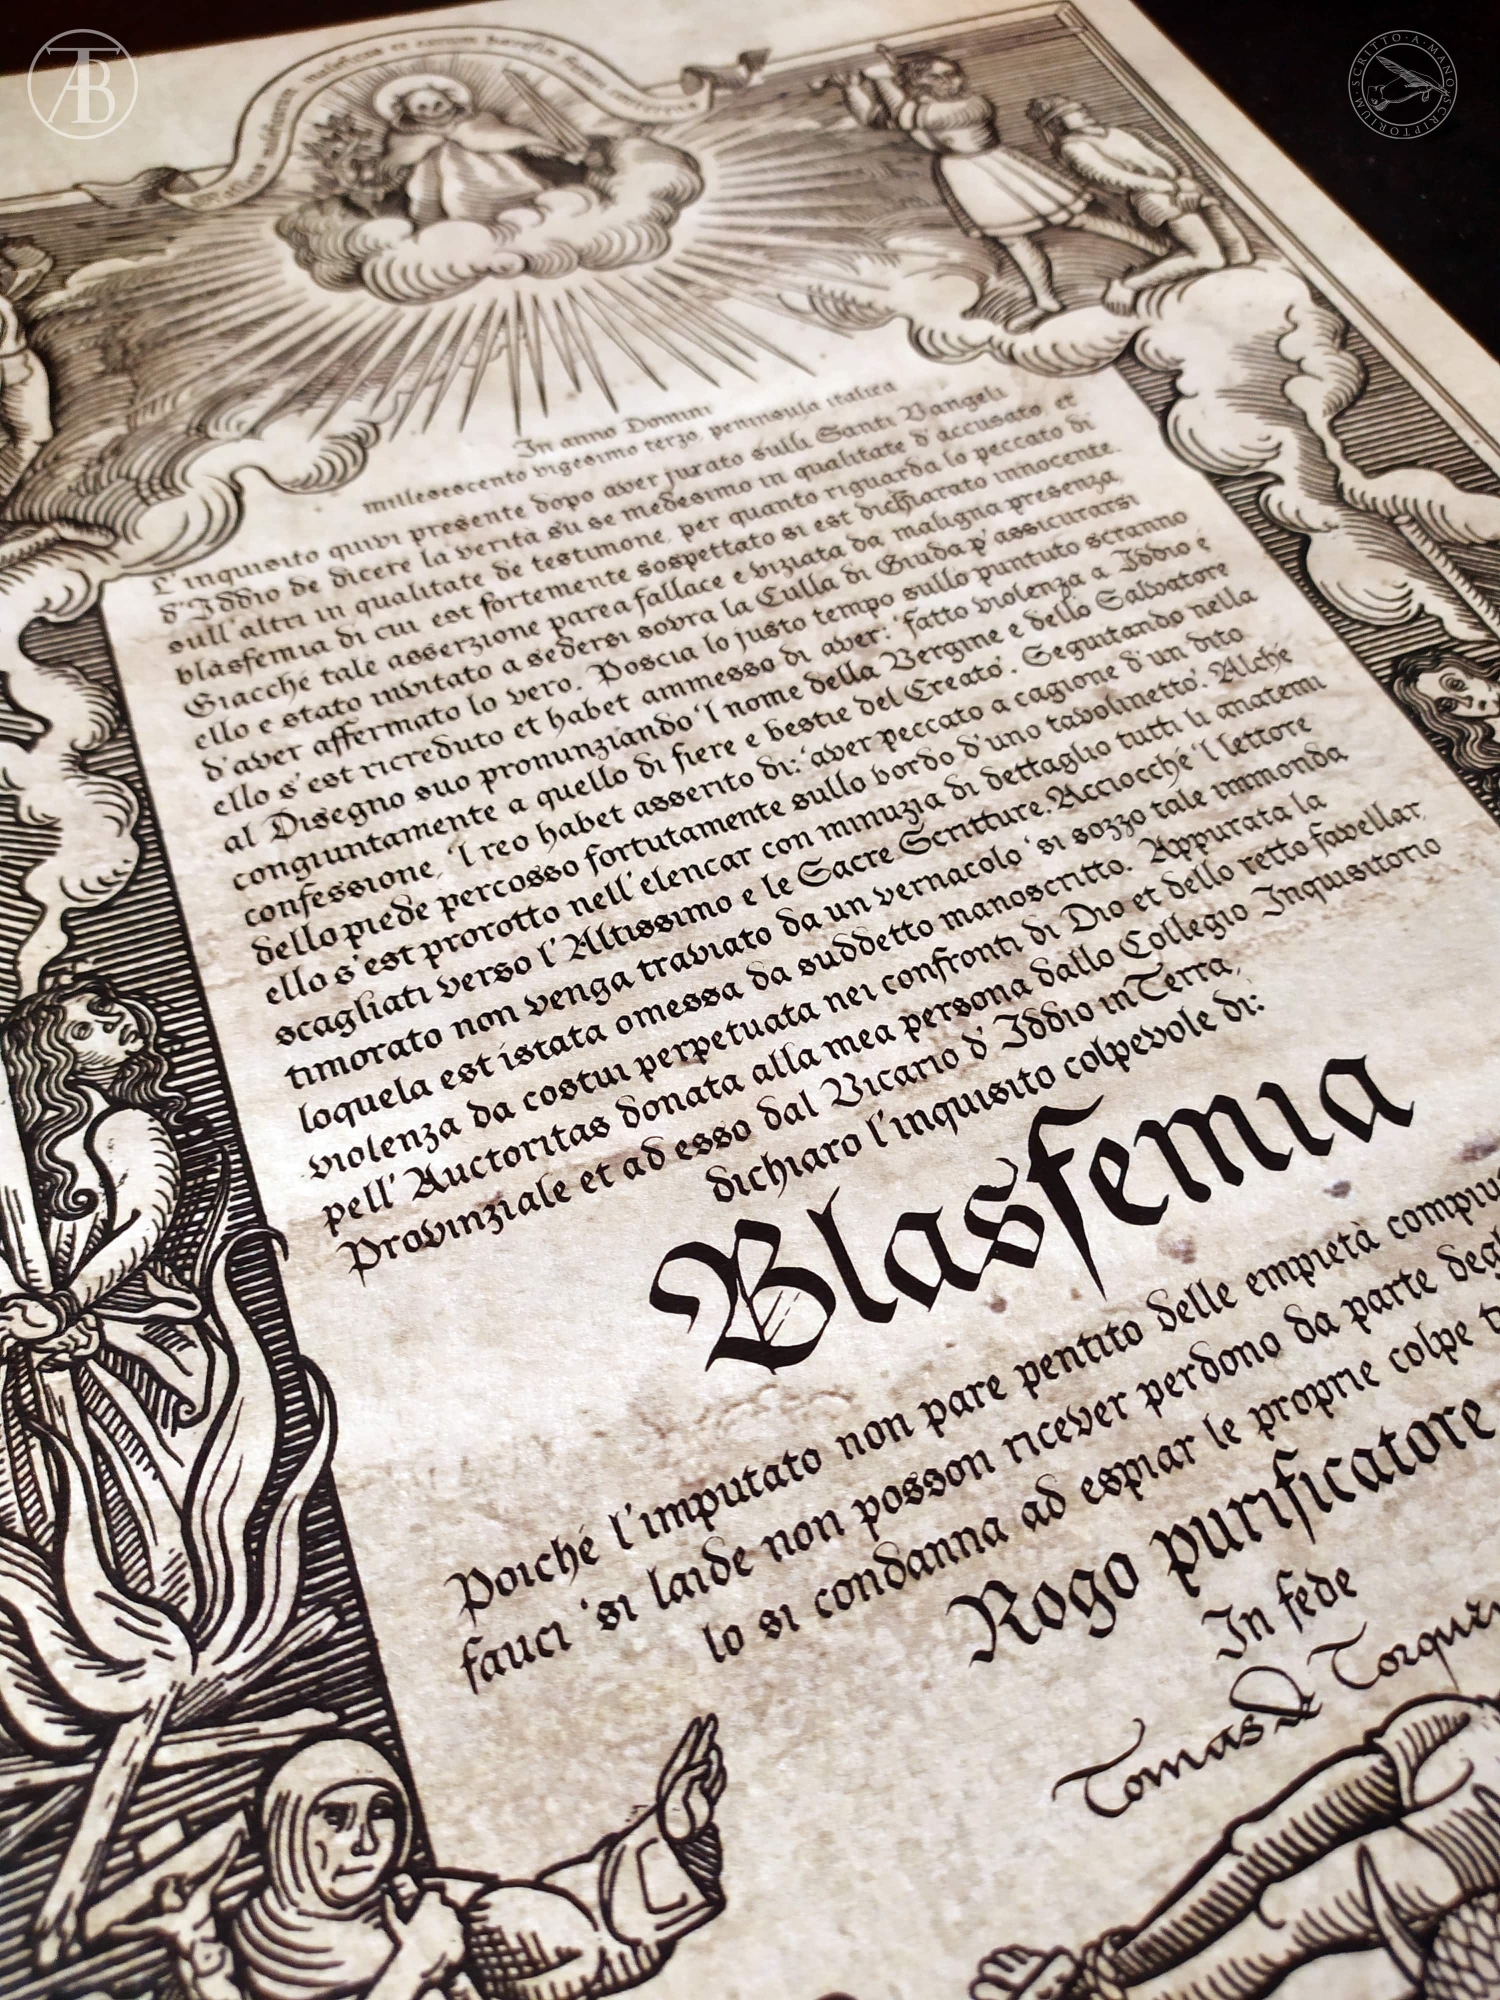 In anno Domini
millesescento vigesimo terzo, peninsula italica
L'inquisito quivi presente dopo aver jurato sulli Santi Vangeli
d'Iddio de dicere la verità su se medesimo in qualitate d'accusato, et
sull'altri in qualitate de testimone, per quanto riguarda lo peccato di
blasfemia di cui est fortemente sospettato si est dichiarato innocente.
Giacché tale asserzione parea fallace e viziata da maligna presenza,
ello e stato invitato a sedersi sovra la Culla di Giuda p'assicurarsi
d'aver affermato lo vero. Poscia lo justo tempo sullo puntuto scranno
ello s'est ricreduto et habet ammesso di aver: 'fatto violenza a Iddio e
al Disegno suo pronunziando 'l nome della Vergine e dello Salvatore
congiuntamente a quello di fiere e bestie del Creato'. Seguitando nella
confessione, 'l reo habet asserito di: 'aver peccato a cagione d'un dito
dello piede percosso fortutamente sullo bordo d'uno tavolinetto'. Alché
ello s'est prorotto nell'elencar con minuzia di dettaglio tutti li anatemi
scagliati verso l'Altissimo e le Sacre Scritture. Acciocché 'l lettore
timorato non venga traviato da un vernacolo 'sì sozzo tale immonda
loquela est istata omessa da suddetto manoscritto. Appurata la
violenza da costui perpetuata nei confronti di Dio et dello retto favellar,
pell'Auctoritas donata alla mea persona dallo Collegio Inquisitorio
Provinziale et ad esso dal Vicario d'Iddio in Terra,
dichiaro l'inquisito colpevole di:
Blasfemia
Poiché l'imputato non pare pentito delle empietà
fauci 'sì laide non posson ricever perdono da parte
lo si condanna ad espiar le proprie colpe
Rogo purificatore
In fede
Tomas de
TAB
SCRITTO·A·MANO·SCRIPTORIUM